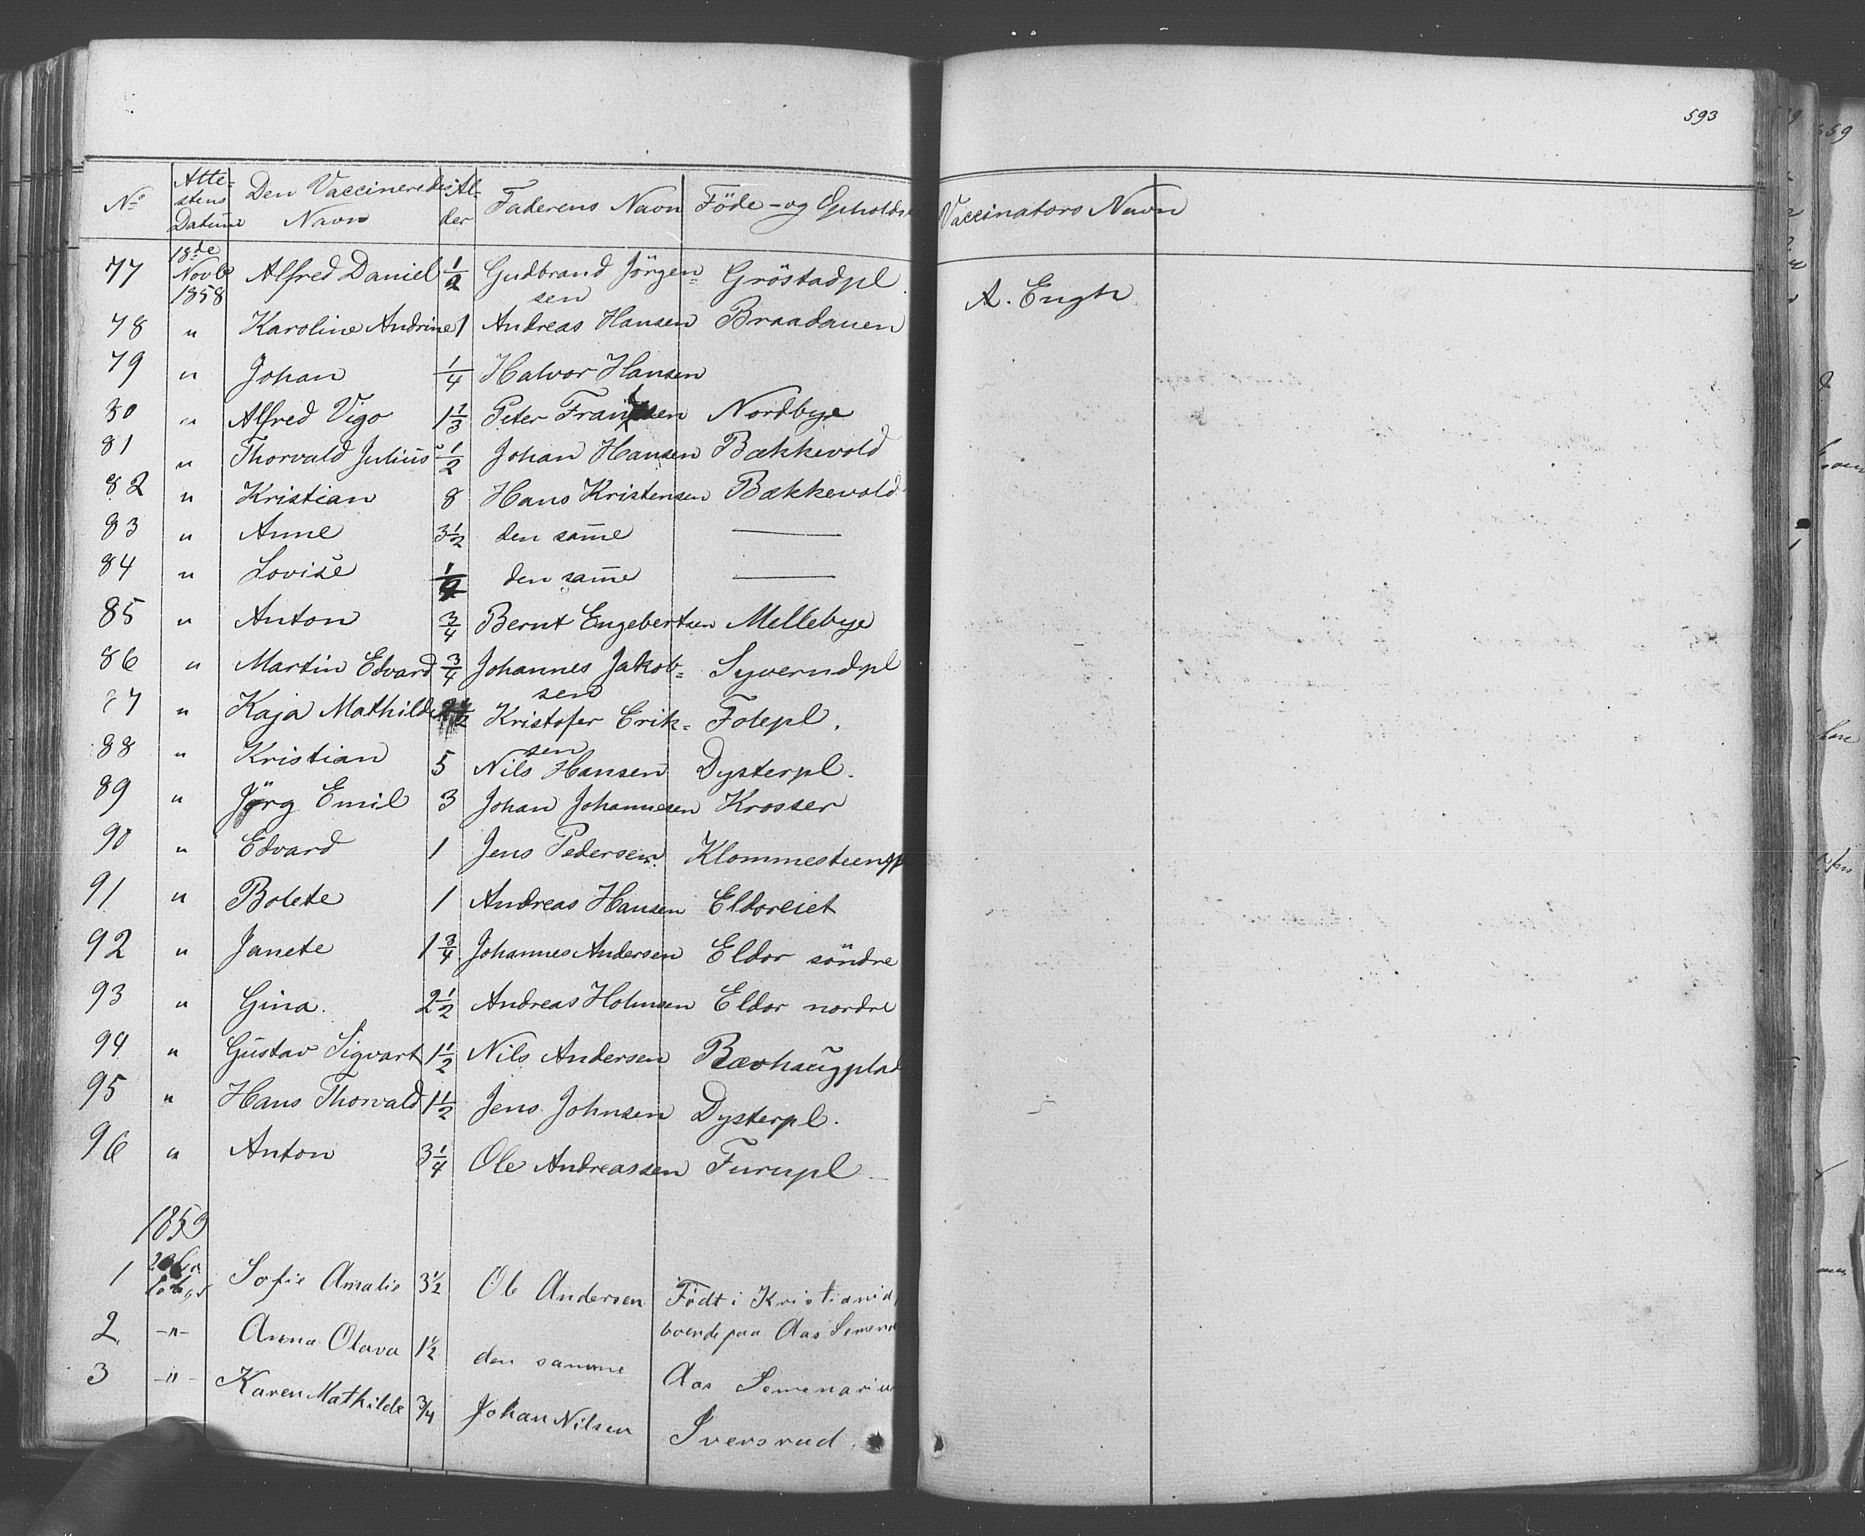 593
No Atte-stens Datum Den Vaccineredes Navn Al-der Faderens Navn Föde-og Opholds Vaccinators Navn
77 18de Novb 1858 Alfred Daniel 1/2 Gudbrand Jörgen=sen Gröstadpl. A. Engh
78 " Karoline Andrine 1 Andreas Hansen Braadauen
79 " Johan 1/4 Halvor Hansen
80 " Alfred Vigo 1 1/3 Peter Nordbye
81 " Thorvald Julius 1/2 Johan Hansen Bækkevold
82 " Kristian 8 Hans Kristensen Bækkevold
83 " Anne 3 1/2 den samme —
84 " Lovise den samme —
85 " Anton 3/4 Bernt Engebertsen Mellebye
86 " Martin Edvard 3/4 Johannes Jakob=sen Syverudpl
87 " Kaja Mathilde Kristofer Erik=sen Folepl.
88 " Kristian 5 Nils Hansen Dysterpl.
89 " Jörg Emil 3 Johan Johannesen Krosser
90 " Edvard 1 Jens Pedersen Klommesteenspl
91 " Bolete 1 Andreas Hansen Eldoreiet
92 " Janete 1 3/4 Johannes Andersen Eldor söndre
93 " Gina. 2 1/2 Andreas Holmsen Eldor nordre
94 " Gustav Sigvart 1 1/2 Nils Andersen Rævhaugplad
95 " Hans Thorvald 1 1/2 Jens Johnsen Dysterpl.
96 " Anton 3 1/4 Ole Andreassen Furupl
1859
1 Sofie Amalie 3 1/2 Ole Andersen Födt i Kristiania boende paa Aas Semena
2 -"- Anna Olava 1 1/2 den samme Aas Semenariu
3 -"- Karen Mathilde 3/4 Johan Nilsen Iversrud.